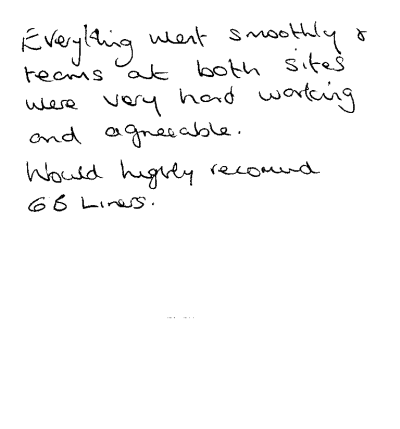 Everything went smoothly &
teams at both sites
were very hard working
and agreeable.
Would highly recomend
GB Liners.